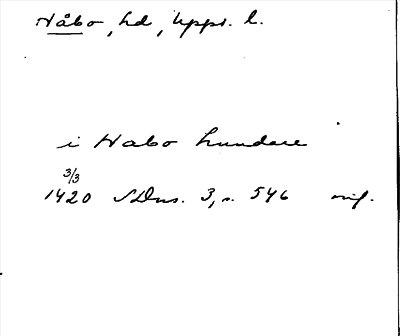 Håbo, hd, Upps. l.
i Habo hundare
3/3
1420 SDns. 3, s. 546 orig.